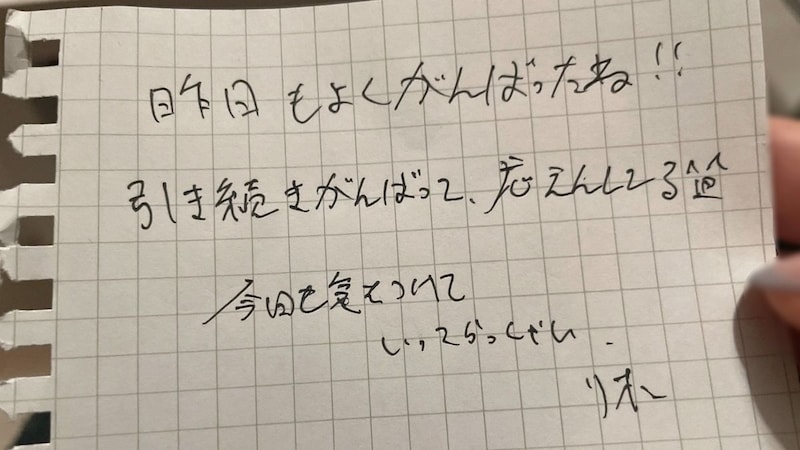 昨日もよくがんばったね!!
引き続きがんばって、応えんしてる
今日も気をつけて
いってらっしゃい.
リオ